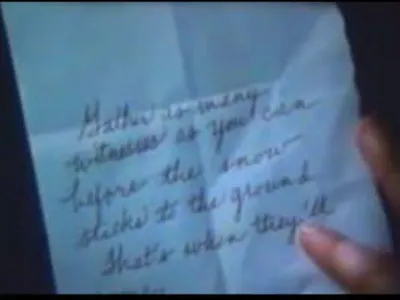 Gather as many
witnesses as you can
before the snow
sticks to the ground
That's when they'll